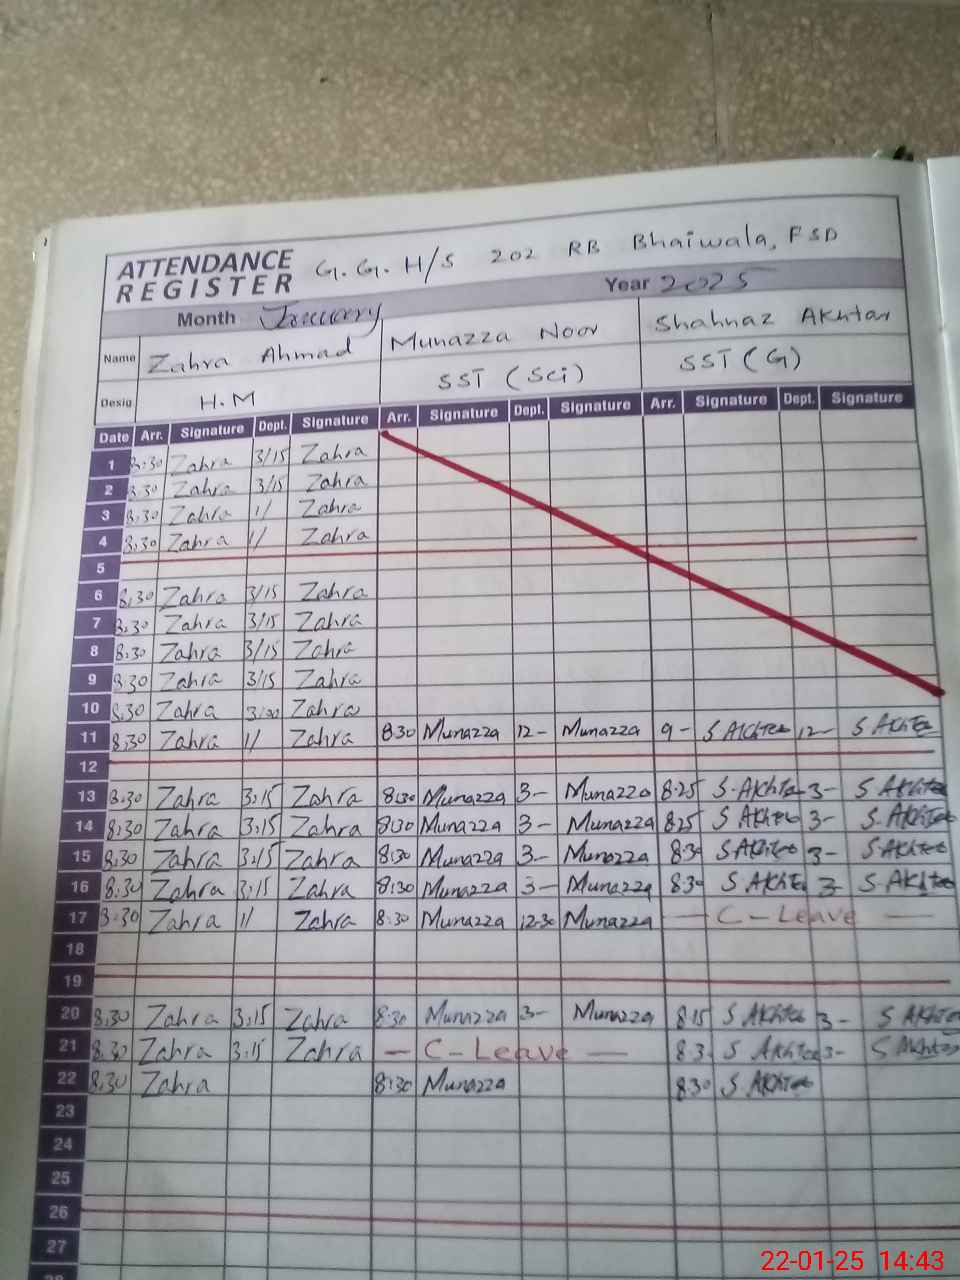 ATTENDANCE REGISTER G.G.H/S 202 RB Bhaiwala, FSD
Month January Year 2025
Name Zahra Ahmad Munazza Noor Shahnaz Akhtar
Desig H.M SST (Sci) SST (G)
Date Arr. Signature Dept. Signature Arr. Signature Dept. Signature Arr. Signature Dept. Signature
1 8:30 Zahra 3/15 Zahra
2 8.30 Zahra 3/15 Zahra
3 8:30 Zahra 11 Zahra
4 8.30 Zahra 11 Zahra
5
6 8.30 Zahra 3/15 Zahra
7 8.30 Zahra 3/15 Zahra
8 8:30 Zahra 3/15 Zahra
9 8:30 Zahra 3/15 Zahra
10 8.30 Zahra Zahra
11 8:30 Zahra 11 Zahra 8:30 Munazza 12- Munazza 9- S Akhtar 12- S Akhtar
12
13 8.30 Zahra 3.15 Zahra 8:30 Munazza 3- Munazza 8.25 S.Akhtar 3- S Akhtar
14 8:30 Zahra 3.15 Zahra 8:30 Munazza 3- Munazza 825 S Akhtar 3- S.Akhtar
15 8:30 Zahra 3:15 Zahra 8:30 Munazza 3- Munazza 8.30 S Akhtar 3- S Akhtar
16 8:30 Zahra 3:15 Zahra 8:30 Munazza 3- Munazza 830 S Akhtar 3- S Akhtar
17 8.30 Zahra 11 Zahra 8:30 Munazza 12.30 Munazza — C-Leave —
18
19
20 8.30 Zahra 3.15 Zahra 8:30 Munazza 3- Munazza 815 S Akhtar 3- S Akhtar
21 8.30 Zahra 3.15 Zahra — C-Leave — 8.3 S Akhtar 3- S Akhtar
22 8.30 Zahra 8:30 Munazza 8.30 S.Akhtar
23
24
25
26
27
28
22-01-25 14:43